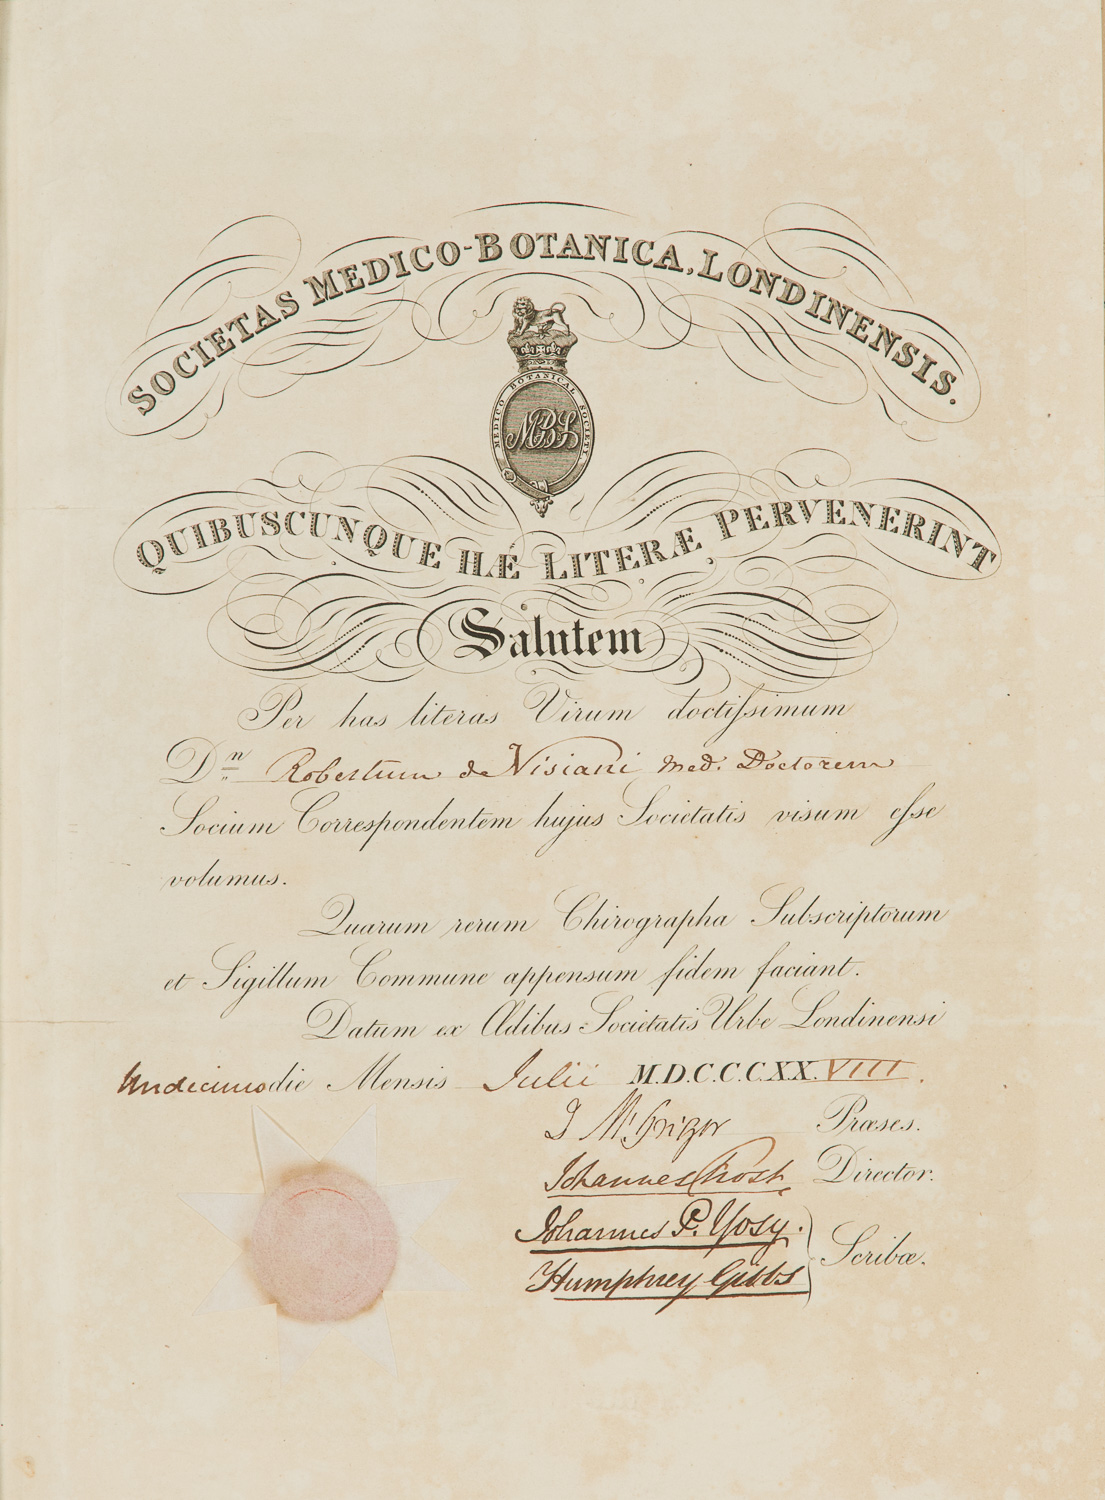 SOCIETAS MEDICO-BOTANICA, LONDINENSIS.
MEDICO BOTANICAL SOCIETY
MBS
QUIBUSCUNQUE HÆ LITERÆ PERVENERINT
Salutem
Per has literas Virum doctiſsimum
Dn Robertum de Visiani Med. Doctorem
Socium Correspondentem hujus Societatis visum eſse
volumus.
Quarum rerum Chirographa Subscriptorum
et Sigillum Commune appensum fidem faciant.
Datum ex Ædibus Societatis Urbe Londinensi
Undecimo die Mensis Julii M.D.C.C.C.XX.VIII.
J McGrigor Præses.
Johannes Frost Director.
Johannes P. Yosy.
Humphrey Gibbs
Scribæ.